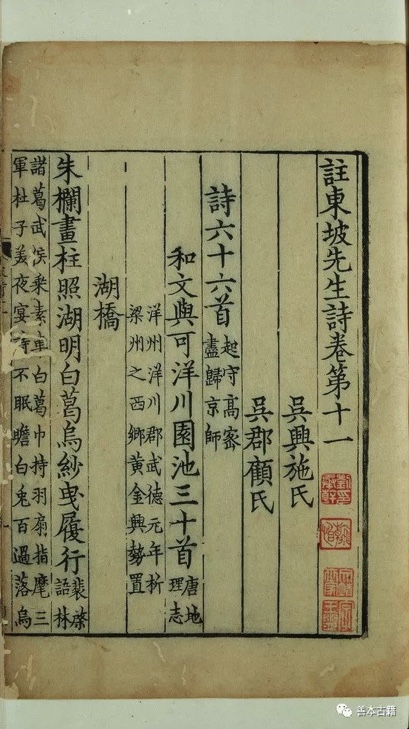 註東坡先生詩卷第十一
吳興施氏
吳郡顧氏
詩六十六首
起守高密
盡歸京師
和文與可洋川園池三十首
唐地
理志
洋州洋川郡武德元年析
梁州之西鄉黃金興勢置
湖橋
朱欄畫柱照湖明白葛烏紗曳履行
裴棨
語林
諸葛武侯乘素車白葛巾持羽扇指麾三
軍杜子美夜宴詩不眠瞻白兔百過落烏
善本古籍